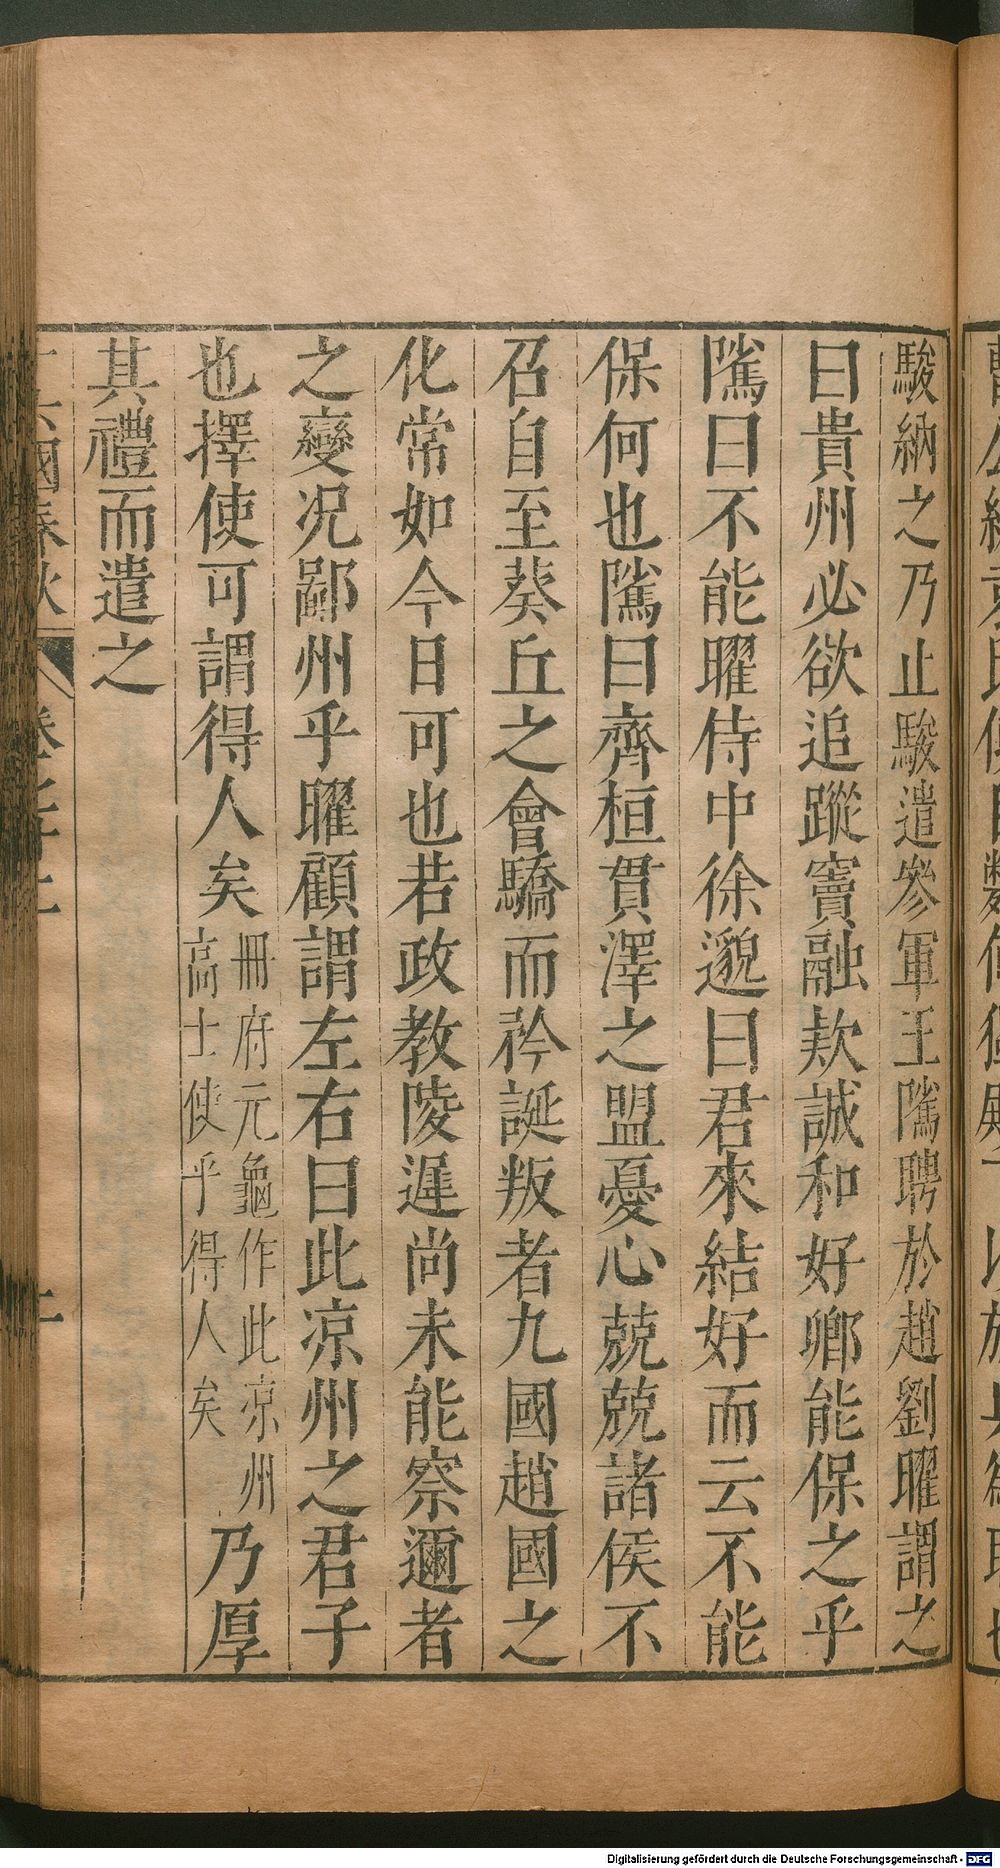 駿納之乃止駿遣參軍王隲聘於趙劉曜謂之
曰貴州必欲追蹤竇融欵誠和好卿能保之乎
隲曰不能曜侍中徐邈曰君來結好而云不能
保何也隲曰齊桓貫澤之盟憂心兢兢諸侯不
召自至葵丘之會驕而矜誕叛者九國趙國之
化常如今日可也若政教陵遲尚未能察邇者
之變況鄙州乎曜顧謂左右曰此凉州之君子
也擇使可謂得人矣
冊府元龜作此凉州
高士使乎得人矣
乃厚
其禮而遣之
國春秋
Digitalisierung gefördert durch die Deutsche Forschungsgemeinschaft - DFG